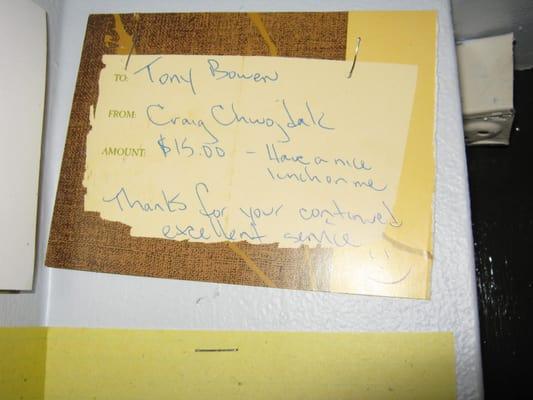 TO: Tony Bowen
FROM: Craig Chwojdak
AMOUNT: $15.00 - Have a nice
lunch on me
Thanks for your continued
excellent service